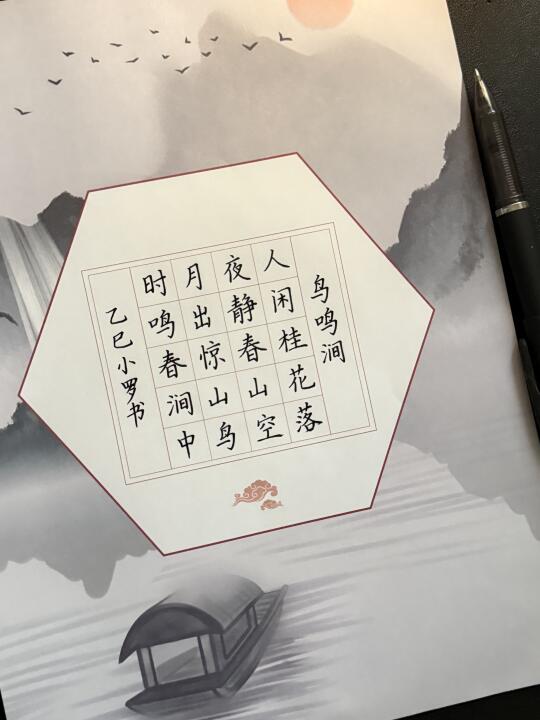 鸟鸣涧
人闲桂花落
夜静春山空
月出惊山鸟
时鸣春涧中
乙巳小罗书